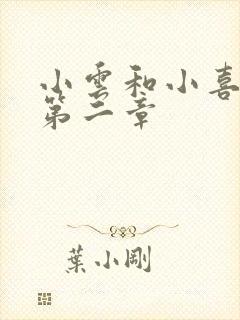 小雲和小喜
第二章
葉小剛